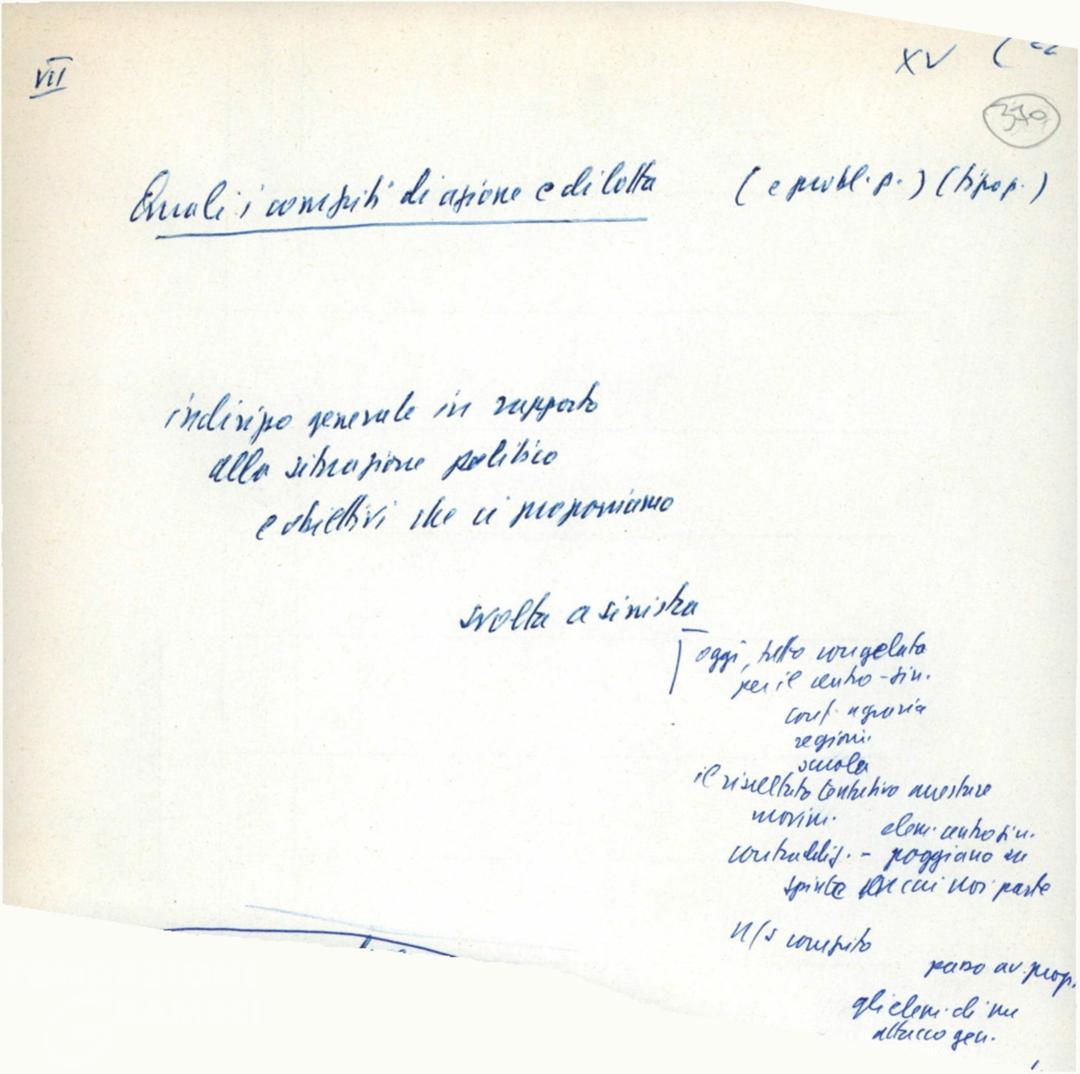 VII
XV
370
Quali i compiti di azione e di lotta (e probl. p.) (tipo p.)
indirizzo generale in rapporto
alla situazione politica
e obiettivi che ci proponiamo
svolta a sinistra
oggi, tutto congelato
per il centro-sin.
conf. agraria
regioni
scuola
il risultato tentativo arrestare
movim. elem. centro sin.
contraddiz. - poggiano su
spinta di cui noi parte
n/s compito
passo av. prop.
gli elem. di un
attacco gen.